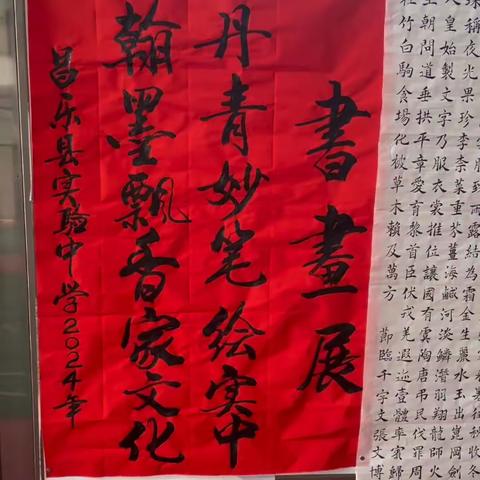 書畫展
丹青妙笔绘实中
翰墨飄香家文化
昌乐县实验中学2024年
秋收冬
雨露結為霜金生麗水玉出崑岡劍
珠稱夜光果珍李柰菜重芥薑海鹹河淡鱗潛羽翔龍師火
人皇始製文字乃服衣裳推位讓國有虞陶唐弔民伐罪周
坐朝問道垂拱平章愛育黎首臣伏戎羌遐迩壹體率賓歸
在竹白駒食場化被草木賴及萬方
節臨千字文張文博